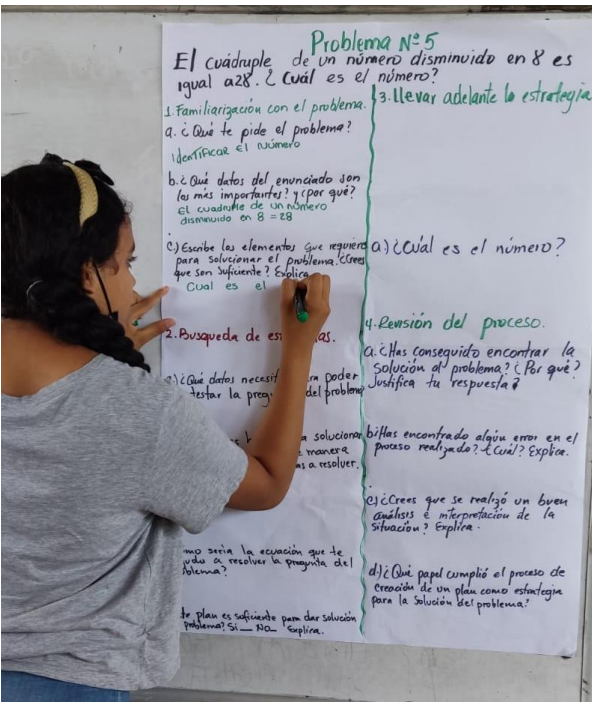 Problema Nº 5
El cuádruple de un número disminuido en 8 es
igual a 28. ¿Cuál es el número?
1. Familiarización con el problema.
a. ¿Qué te pide el problema?
Identificar el número
b. ¿Qué datos del enunciado son
los más importantes? y ¿por qué?
El cuadruple de un número
disminuido en 8 = 28
c.) Escribe los elementos que requiere
para solucionar el problema. ¿Crees
que son suficiente? Explica
Cual es el
2. Busqueda de
a) ¿Qué datos poder
testar la del problema
a solucionar
manera
a resolver.
seria la ecuación que te
a resolver la pregunta del
plan es suficiente para dar solución
problema? Si __ No __ Explica.
3. Llevar adelante la estrategia
a) ¿Cuál es el número?
4. Revisión del proceso.
a. ¿Has conseguido encontrar la
solución al problema? ¿Por qué?
Justifica tu respuesta?
b. ¿Has encontrado algún error en el
proceso realizado? ¿Cuál? Explica.
c) ¿Crees que se realizó un buen
análisis e interpretación de la
situación? Explica.
d) ¿Qué papel cumplió el proceso de
creación de un plan como estrategia
para la solución del problema?